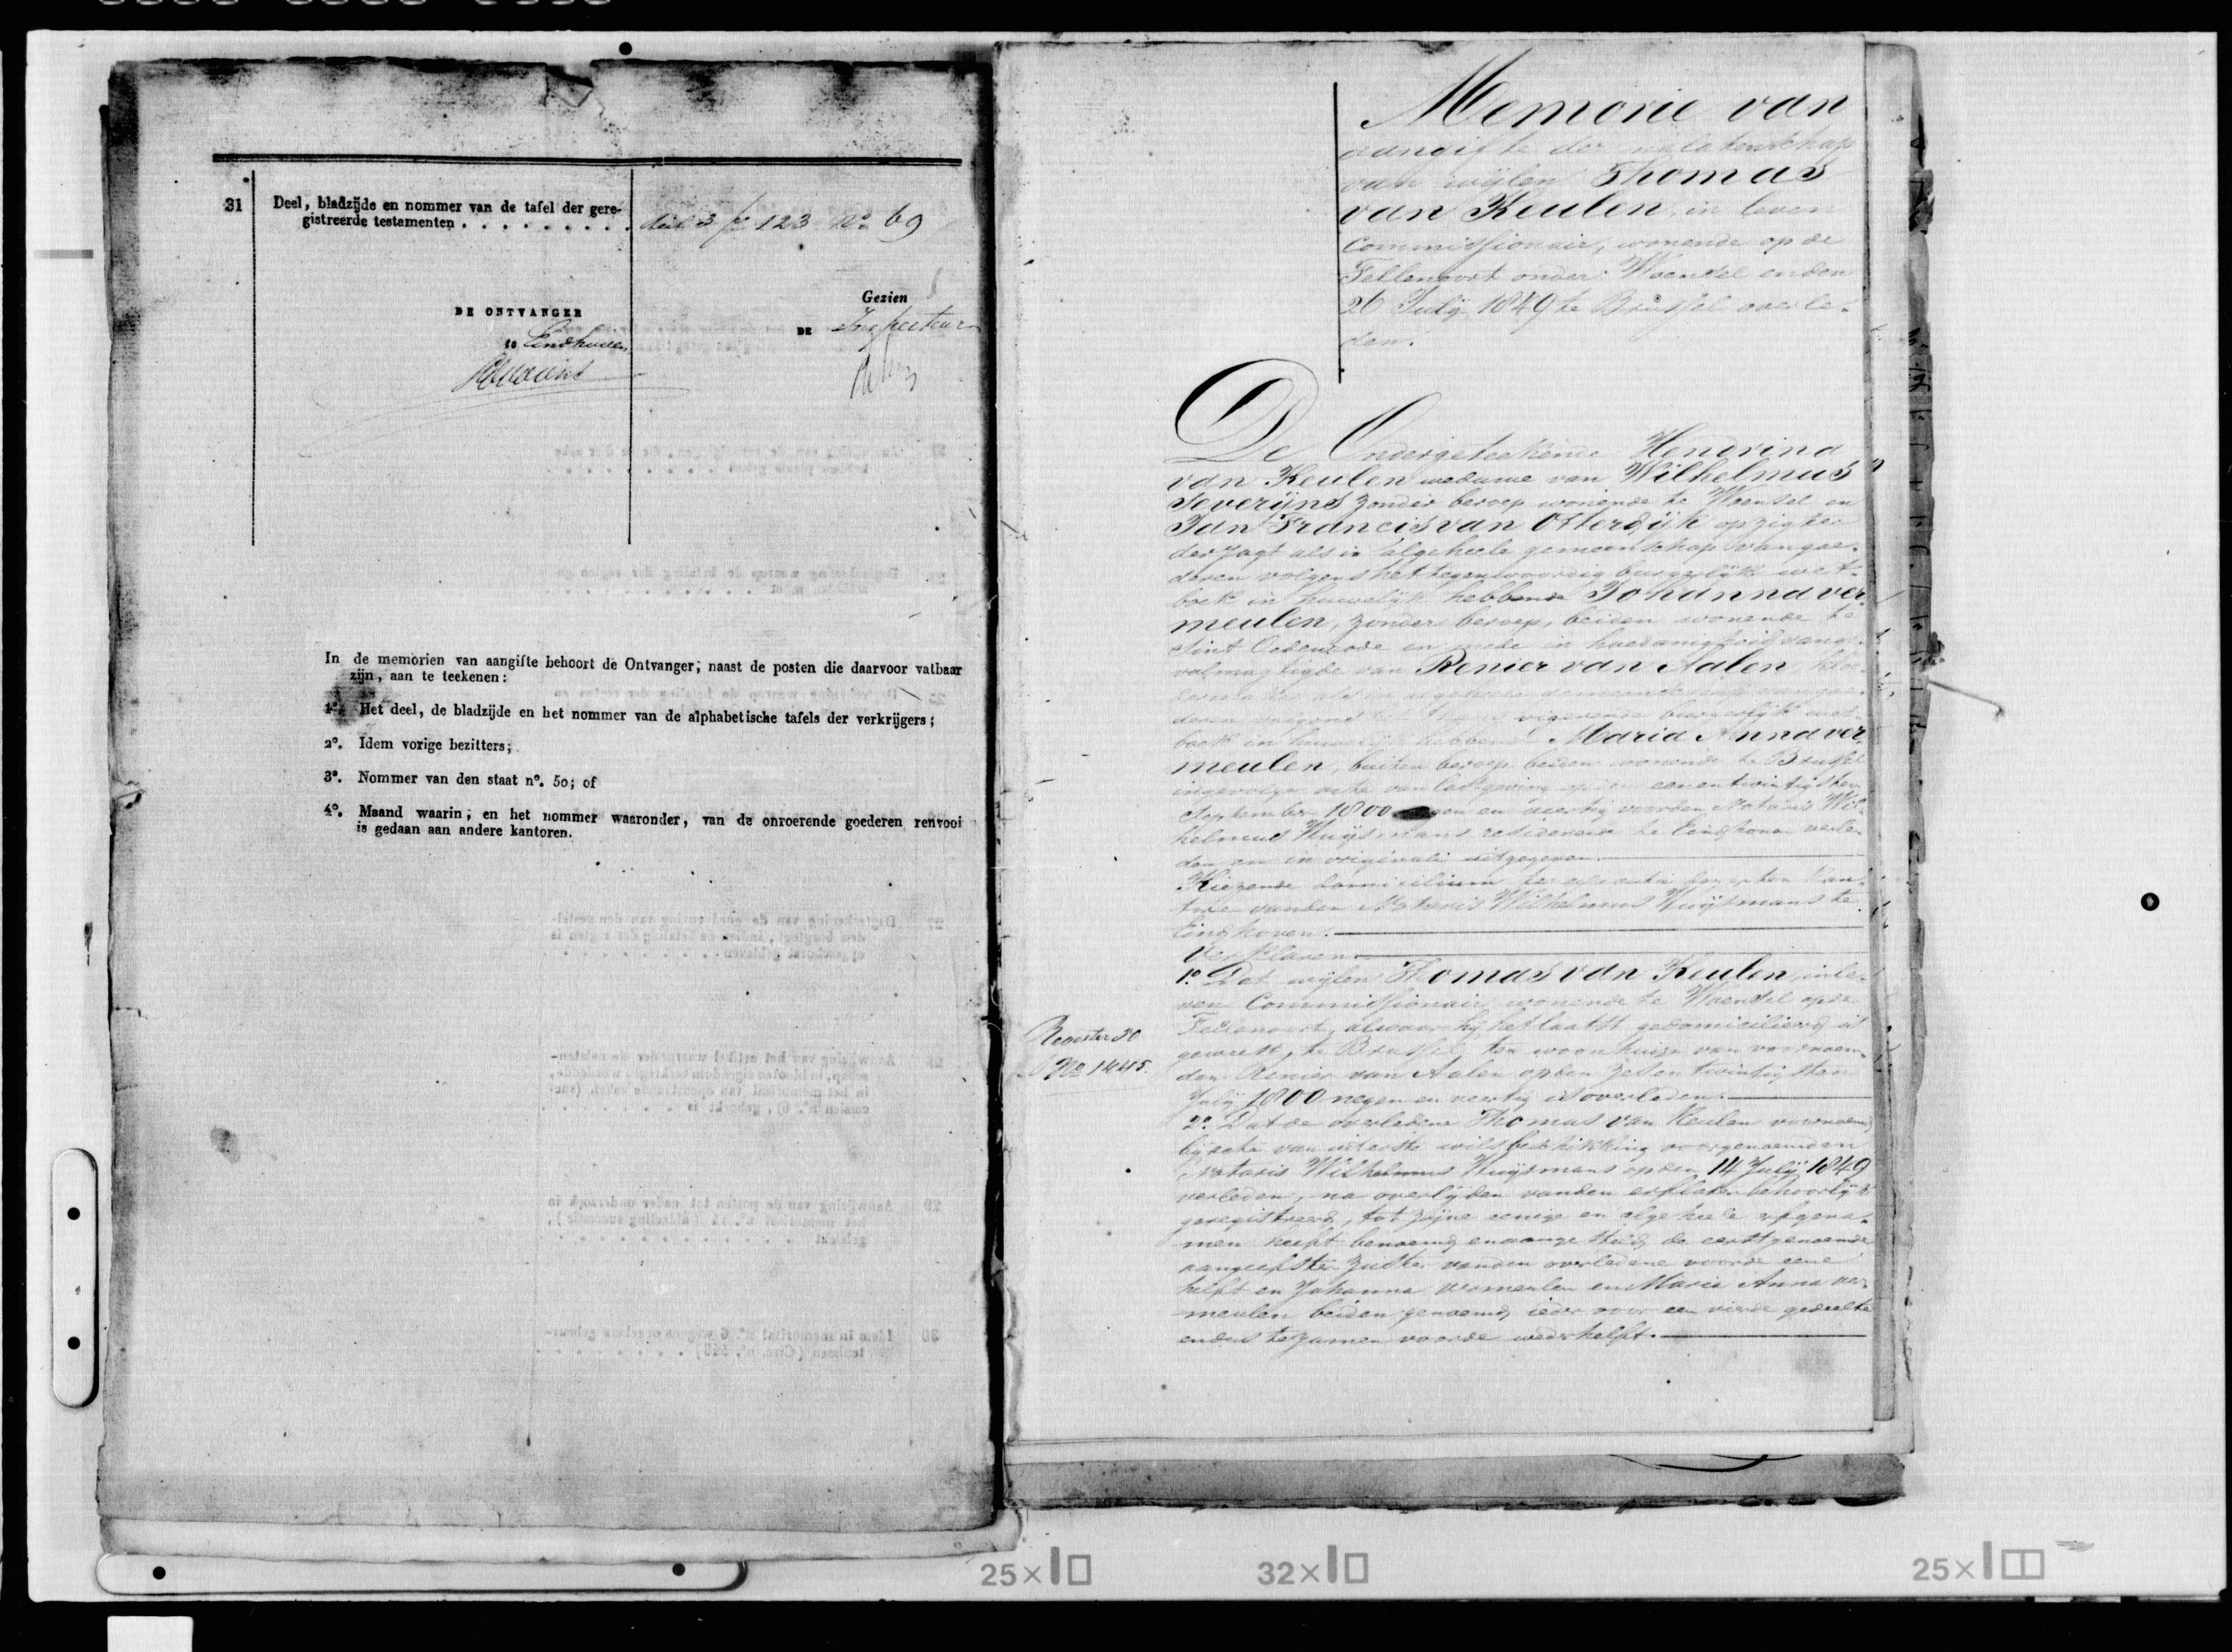 31 Deel, bladzijde en nommer van de tafel der gere-
gistreerde testamenten . . . . . . . . . deel 3 fo 123 No 69
DE ONTVANGER
te Eindhoven
Gezien
DE Inspecteur
In de memorien van aangifte behoort de Ontvanger, naast de posten die daarvoor vatbaar
zijn, aan te teekenen:
1º. Het deel, de bladzijde en het nommer van de alphabetische tafels der verkrijgers;
2º. Idem vorige bezitters;
3º. Nommer van den staat nº. 50; of
4º. Maand waarin, en het nommer waaronder, van de onroerende goederen renvooi
is gedaan aan andere kantoren.
Memorie van
aangifte der nalatenschap
van wijlen Thomas
van Keulen, in leven
Commissionair, wonende op de
Fellenoort onder Woensel en den
26 Julij 1849 te Brussel overle-
den.
De Ondergeteekende Hendrina
van Keulen weduwe van Wilhelmus
Severijns zonder beroep wonende te Woensel en
Jan Francis van Otterdijk opzigter
der jagt als in algeheele gemeenschap van goe-
deren volgens het tegenwoordig burgerlijk wet-
boek in huwelijk hebbende Johanna ver
meulen, zonder beroep, beiden wonende te
Sint Oedenrode en mede in hoedanigheid van ge-
volmagtigde van Renier van Aalen,
als in algeheele gemeenschap van goe-
deren volgens het burgerlijk wet-
boek in huwelijk hebbende Maria Anna ver
meulen, buiten beroep beiden wonende te Brussel
ingevolge acte van lastgeving op den eenentwintigsten
September 1800 negen en veertig voor den Notaris Wil-
helmus Huijsmans resideerende te Eindhoven verle-
den en in originali uitgegeven.
Kiezende domicilium ter kan-
tore van den Notaris Wilhelmus Huijsmans te
Eindhoven.
Verklaren
1º. Dat wijlen Thomas van Keulen, in le-
ven Commissionair wonende te Woensel op de
Fellenoort, alwaar hij het laatst gedomicilieerd is
geweest, te Brussel ten woonhuize van voornoem-
den Renier van Aalen op den zes en twintigsten
Julij 1800 negen en veertig is overleden.
Register 50
No 1445.
2º. Dat de overledene Thomas van Keulen voornoemd
bij acte van uiterste wilsbeschikking voor genoemden
Notaris Wilhelmus Huijsmans op den 14 Julij 1849
verleden, na overlijden van den erflater behoorlijk
geregistreerd, tot zijne eenige en algeheele erfgena-
men heeft benoemd en aangesteld, de eerstgenoemde
aangeefster zuster van den overledene voor de eene
helft en Johanna vermeulen en Maria Anna ver-
meulen beiden genoemd, ieder voor een vierde gedeelte
en dus te zamen voor de wederhelft.